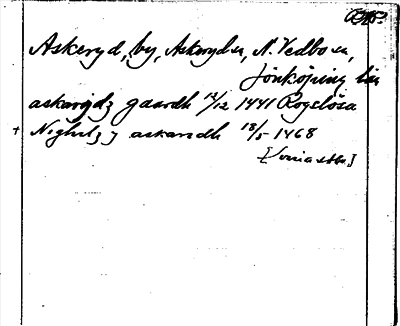 Askeryd, by, Askeryds sn, N. Vedbo sn,
Jönköping län
askarydz gaardh 12/12 1441 Rogslösa
+ Nighelz j askaredh 18/5 1468